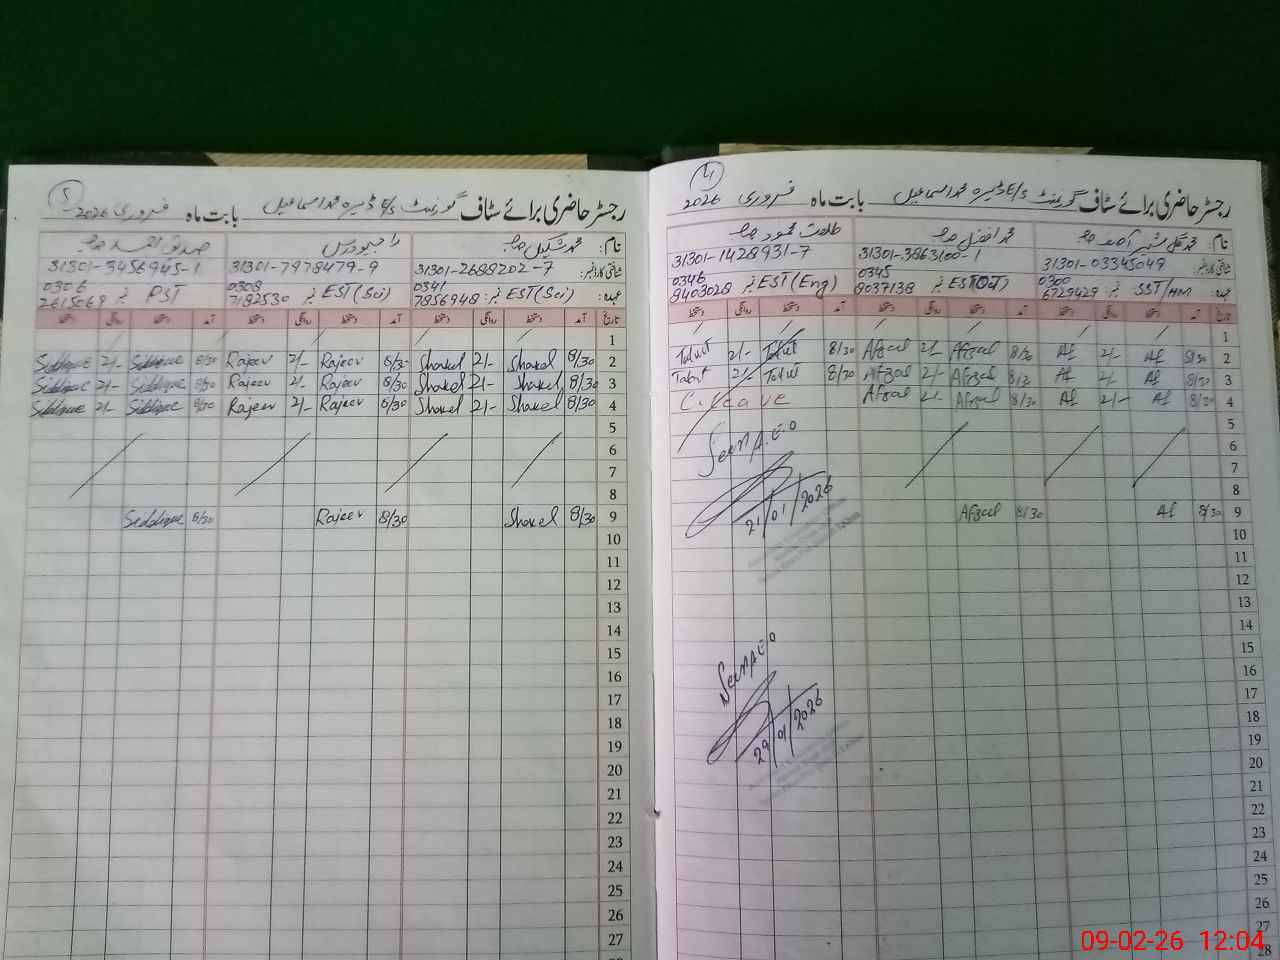 5
رجسٹر حاضری برائے سٹاف گورنمنٹ E/S ڈیرہ محمد اسماعیل بابت ماہ فروری 2026
نام: محمد شکیل صاحب راجیو داس صدیق احمد صاحب
شناختی کارڈ نمبر: 31301-2688202-7 31301-7978479-9 31301-3456945-1
عہدہ: EST (Sci) نمبر 0341 7856948 EST (Sci) نمبر 0308 7182530 PST نمبر 0306 2615068
تاریخ آمد دستخط روانگی دستخط آمد دستخط روانگی دستخط آمد دستخط روانگی دستخط
1
2 8/30 Shakel 2/- Shakel 8/30 Rajeev 2/- Rajeev 8/30 Siddique 2/- Siddique
3 8/30 Shakel 2/- Shakel 8/30 Rajeev 2/- Rajeev 8/30 Siddique 2/- Siddique
4 8/30 Shakel 2/- Shakel 8/30 Rajeev 2/- Rajeev 8/30 Siddique 2/- Siddique
5
6
7
8
9 8/30 Shakel 8/30 Rajeev 8/30 Siddique
10
11
12
13
14
15
16
17
18
19
20
21
22
23
24
25
26
27
4
رجسٹر حاضری برائے سٹاف گورنمنٹ E/S ڈیرہ محمد اسماعیل بابت ماہ فروری 2026
نام: محمد افضل صاحب طلعت محمود صاحب
شناختی کارڈ نمبر: 31301-03345049 31301-3863100-1 31301-1428931-7
عہدہ: SST/HM نمبر 0300 6729429 نمبر 0345 8037138 EST (Eng) نمبر 0346 8403028
تاریخ آمد دستخط روانگی دستخط آمد دستخط روانگی دستخط آمد دستخط روانگی دستخط
1
2 8/30 Af 2/- Af 8/30 Afzaal 2/- Afzaal 8/30 Talat 2/- Talat
3 8/30 Af 2/- Af 8/30 Afzaal 2/- Afzaal 8/30 Talat 2/- Talat
4 8/30 Af 2/- Af 8/30 Afzaal 2/- Afzaal C. leave
5
6
7
8
9 8/30 Af 8/30 Afzaal
10
11
12
13
14
15
16
17
18
19
20
21
22
23
24
25
26
27
28
Seen A.E.O
21/01/2026
Seen A.E.O
29/01/2026
09-02-26 12:04